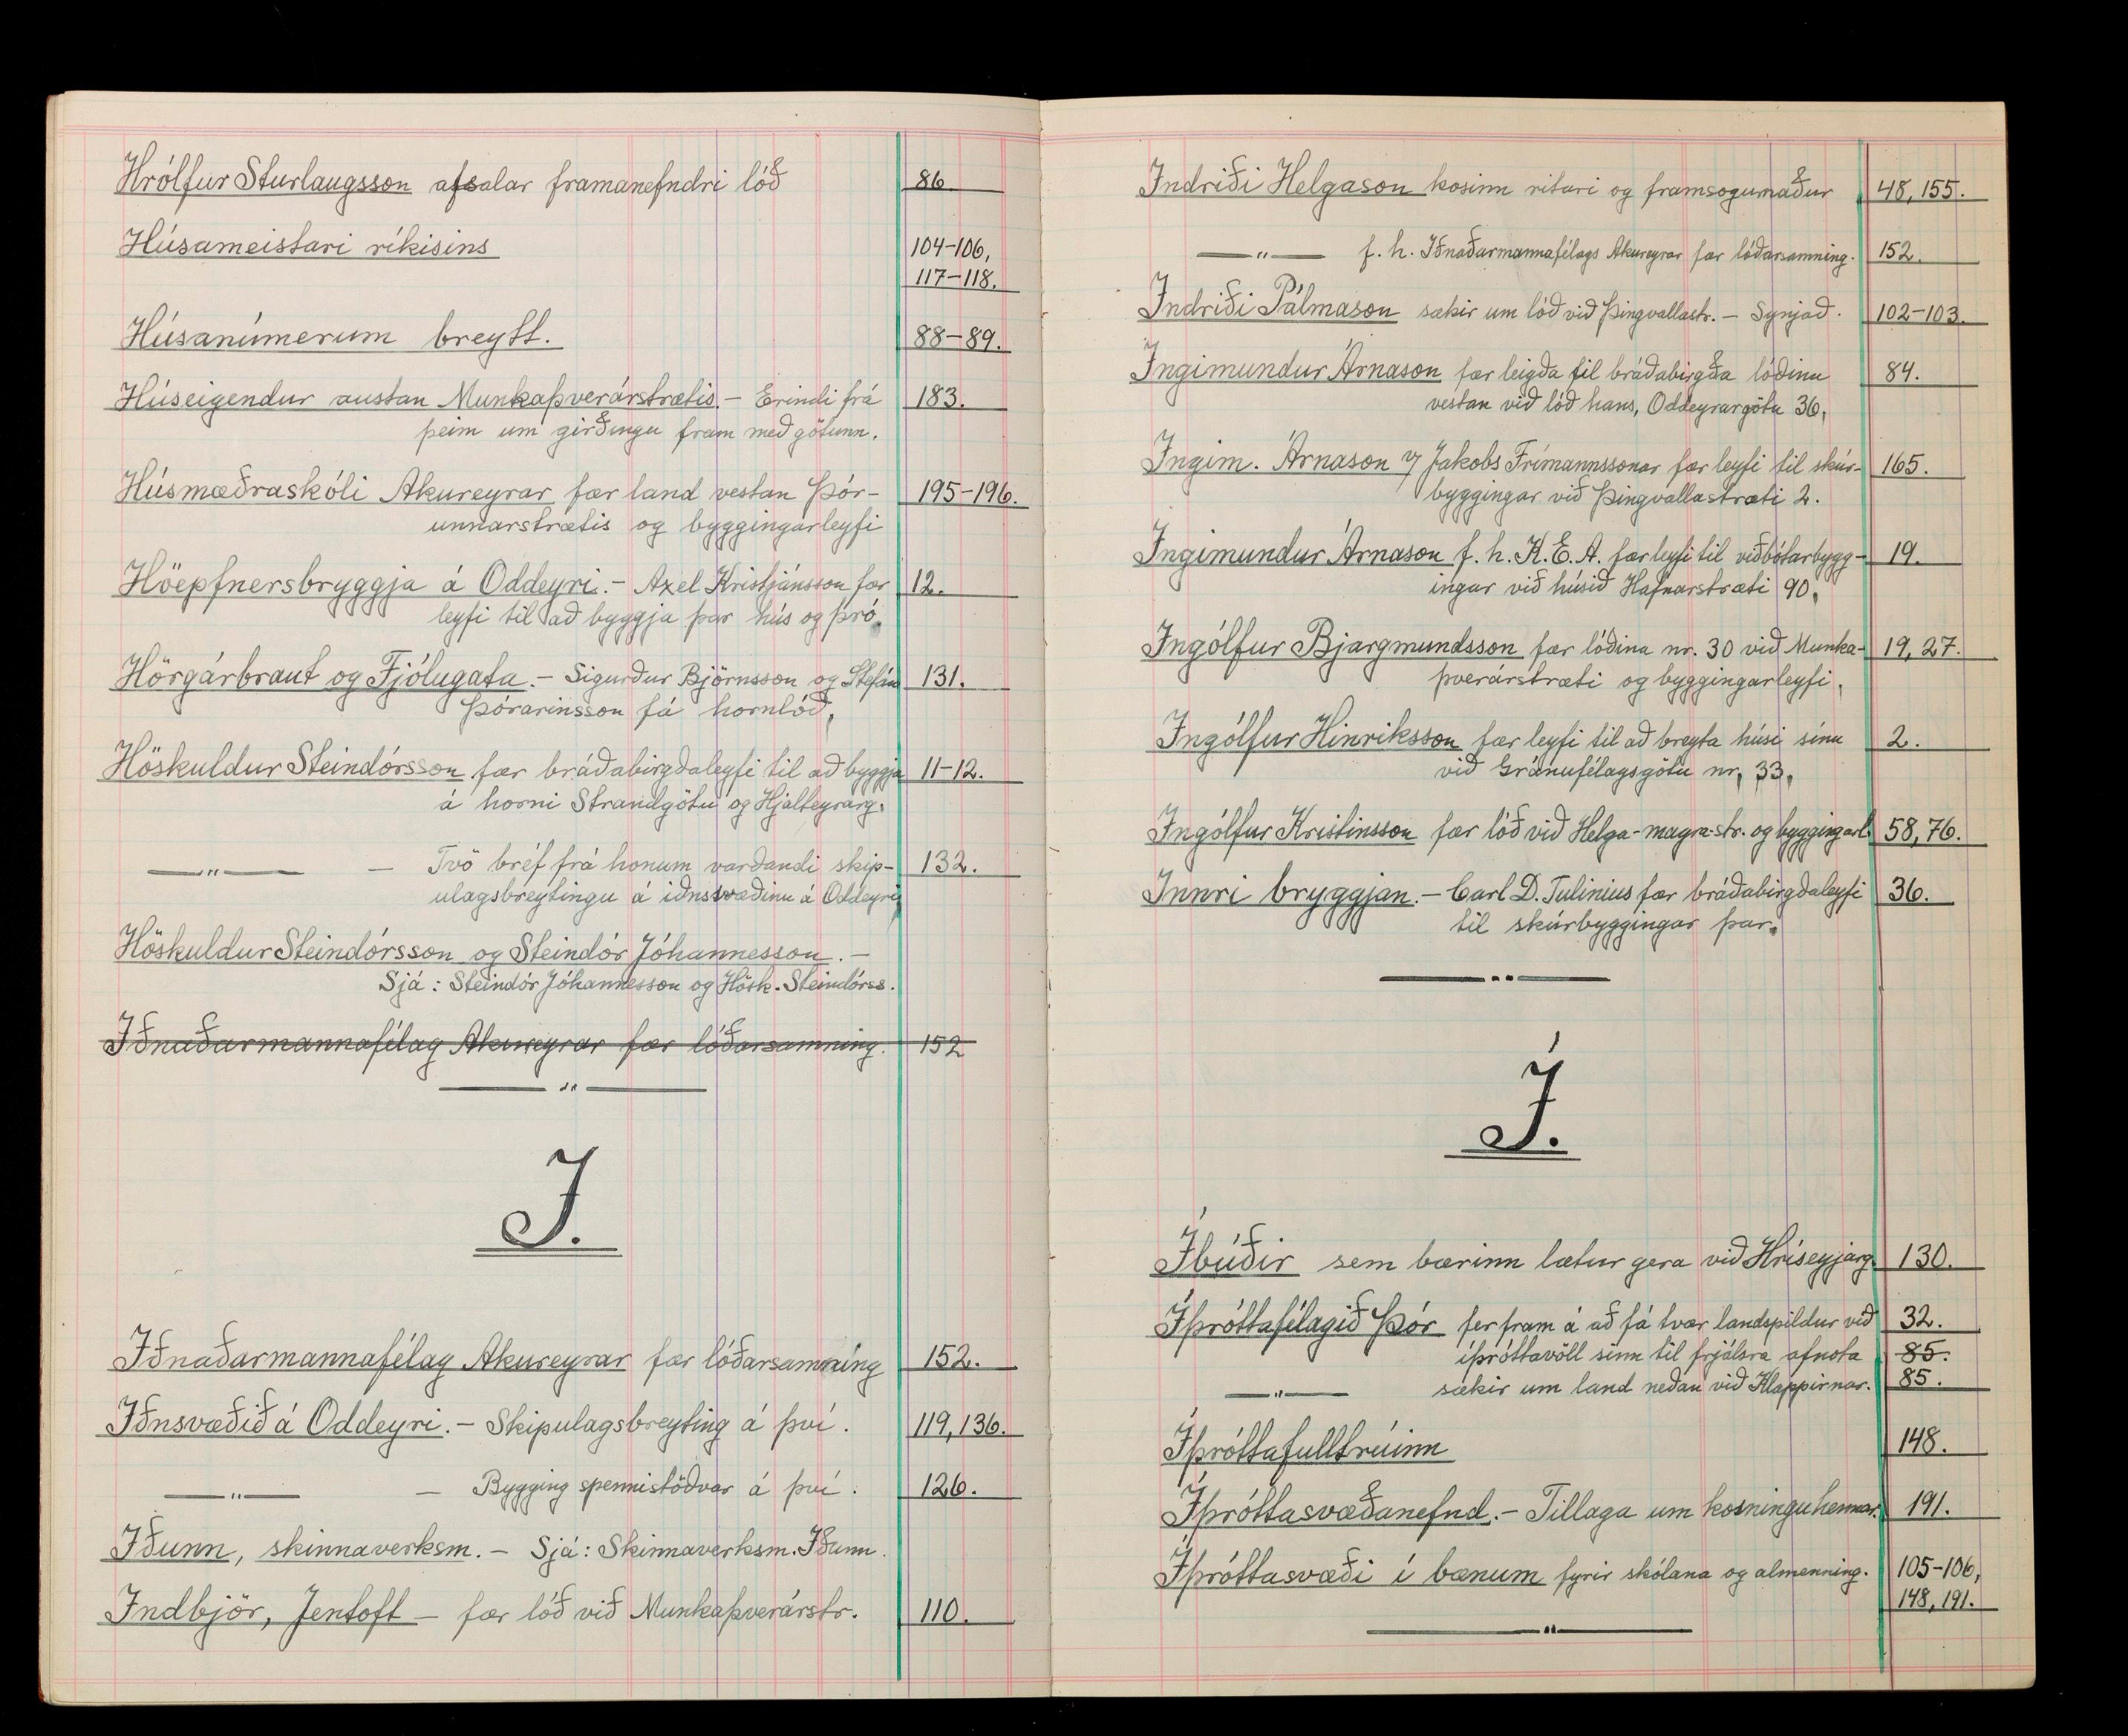 Hrólfur Sturlaugsson afsalar framanefndri lóð 86
Húsameistari ríkisins 104-106,
117-118.
Húsanúmerum breytt. 88-89.
Húseigendur austan Munkaþverárstrætis. - Erindi frá 183.
þeim um girðingu fram með götunn.
Húsmæðraskóli Akureyrar fær land vestan Þór- 195-196.
unnarstrætis og byggingarleyfi
Höepfnersbryggja á Oddeyri. - Axel Kristjánsson fær 12.
leyfi til að byggja þar hús og þró.
Hörgárbraut og Fjólugata. - Sigurður Björnsson og Stefán 131.
Þórarinsson fá hornlóð.
Höskuldur Steindórsson fær bráðabirgðaleyfi til að byggja 11-12.
á horni Strandgötu og Hjalteyrarg.
—"— - Tvö bréf frá honum varðandi skip- 132.
ulagsbreytingu á iðnsvæðinu á Oddeyri
Höskuldur Steindórsson og Steindór Jóhannesson. -
Sjá: Steindór Jóhannesson og Hösk. Steindórss.
Iðnaðarmannafélag Akureyrar fær lóðarsamning. 152
—"—
I.
Iðnaðarmannafélag Akureyrar fær lóðarsamning 152.
Iðnsvæðið á Oddeyri. - Skipulagsbreyting á því. 119, 136.
—"— - Bygging spennistöðvar á því. 126.
Iðunn, skinnaverksm. - Sjá: Skinnaverksm. Iðunn.
Indbjör, Jentoft - fær lóð við Munkaþverárstr. 110.
Indriði Helgason kosinn ritari og framsögumaður 48, 155.
—"— f. h. Iðnaðarmannafélags Akureyrar fær lóðarsamning. 152.
Indriði Pálmason sækir um lóð við Þingvallastr. - Synjað. 102-103.
Ingimundur Árnason fær leigða til bráðabirgða lóðinu 84.
vestan við lóð hans, Oddeyrargötu 36.
Ingim. Árnason & Jakobs Frímannssonar fær leyfi til skúr- 165.
byggingar við Þingvallastræti 2.
Ingimundur Árnason f. h. K.E.A. fær leyfi til viðbótarbygg- 19.
ingar við húsið Hafnarstræti 90.
Ingólfur Bjargmundsson fær lóðina nr. 30 við Munka- 19, 27.
þverárstræti og byggingarleyfi.
Ingólfur Hinriksson fær leyfi til að breyta húsi sínu 2.
við Gránufélagsgötu nr. 33.
Ingólfur Kristinsson fær lóð við Helga-magra-str. og byggingarl. 58, 76.
Innri bryggjan. - Carl D. Tulinius fær bráðabirgðaleyfi 36.
til skúrbyggingar þar.
Í.
Íbúðir sem bærinn lætur gera við Hríseyjarg. 130.
Íþróttafélagið Þór fer fram á að fá tvær landspildur við 32.
íþróttavöll sinn til frjálsra afnota 85.
—"— sækir um land neðan við Klappirnar. 85.
Íþróttafulltrúinn 148.
Íþróttasvæðanefnd. - Tillaga um kosningu hennar. 191.
Íþróttasvæði í bænum fyrir skólana og almenning. 105-106,
148, 191.
—"—